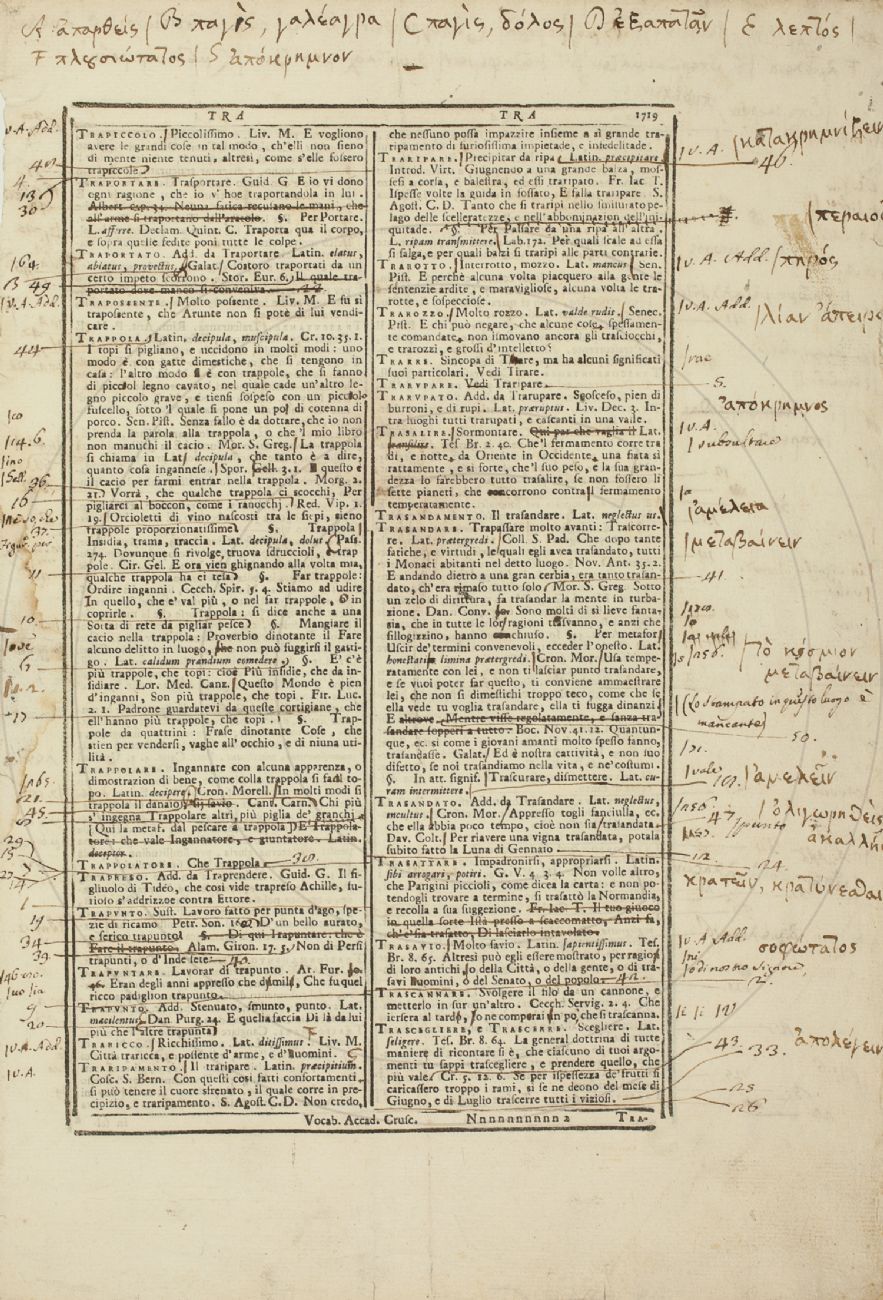 A ἀπαρθείς | B παγὶς, γαλέαγρα | C παγὶς, δόλος | D ἐξαπατᾶν | E λεπτός |
F πλουσιώτατος | G ἀπόκρημνον
TRA
TRAPICCOLO. Piccolissimo. Liv. M. E vogliono
avere le grandi cose in tal modo, ch'elli non sieno
di mente niente tenuti, altresì, come s'elle fossero
trapiccole
TRAPORTARE. Trasportare. Guid. G. E io vi dono
ogni ragione, che io v' hoe traportandola in lui.
Albert. cap. 34. Neuna fatica recusano le mani, che
all'arme si traportano dall'aratolo. §. Per Portare.
L. afferre. Declam. Quint. C. Traporta qua il corpo,
e sopra quelle fedite poni tutte le colpe.
TRAPORTATO. Add. da Traportare. Latin. elatus,
ablatus, provectus. Galat. Costoro traportati da un
certo impeto scorrono. Stor. Eur. 6. Il quale tra-
portato dove manco si conveniva.
TRAPOSSENTE. Molto possente. Liv. M. E fu sì
trapossente, che Arunte non si potè di lui vendi-
care.
TRAPPOLA. Latin. decipula, muscipula. Cr. 10. 35. 1.
I topi si pigliano, e uccidono in molti modi: uno
modo è con gatte dimestiche, che si tengono in
casa: l'altro modo è con trappole, che si fanno
di piccol legno cavato, nel quale cade un'altro le-
gno piccolo grave, e tiensi sospeso con un piccolo
fuscello, sotto 'l quale si pone un pol di cotenna di
porco. Sen. Pist. Senza fallo è da dottare, che io non
prenda la parola alla trappola, o che 'l mio libro
non manuchi il cacio. Mor. S. Greg. La trappola
si chiama in Lat. decipula, che tanto è a dire,
quanto cosa ingannese. Spor. Gell. 3. 1. questo è
il cacio per farmi entrar nella trappola. Morg. 2.
21. Vorrà, che qualche trappola ci scocchi, Per
pigliarci al boccon, come i ranocchj. Red. Vip. 1.
19. Orcioletti di vino nascosti tra le siepi, sieno
trappole proporzionatissime §. Trappola
Insidia, trama, traccia. Lat. decipula, dolus. Pass.
274. Dovunque si rivolge, truova sdruccioli, trap
pole. Cir. Gel. E ora vien ghignando alla volta mia,
qualche trappola ha ei tesa §. Far trappole:
Ordire inganni. Cecch. Spir. 5. 4. Stiamo ad udire
In quello, che e' val più, o nel far trappole, o in
coprirle. §. Trappola: si dice anche a una
Sorta di rete da pigliar pesce §. Mangiare il
cacio nella trappola: Proverbio dinotante il Fare
alcuno delitto in luogo, che non può suggirsi il gasti-
go. Lat. calidum prandium comedere. §. E' c'è
più trappole, che topi: cioè Più insidie, che da in-
sidiare. Lor. Med. Canz. Questo Mondo è pien
d'inganni, Son più trappole, che topi. Fir. Luc.
2. 1. Padrone guardatevi da queste cortigiane, che
ell'hanno più trappole, che topi. §. Trap-
pola da quattrini: Frase dinotante Cose, che
stien per vendersi, vaghe all'occhio, e di niuna uti-
lità.
TRAPPOLARE. Ingannare con alcuna apparenza, o
dimostrazion di bene, come colla trappola si fa il to-
po. Latin. decipere. Cron. Morell. In molti modi si
trappola il danaio si savio. Cant. Carn. Chi più
s' ingegna Trappolare altri, più piglia de' granchi
(Qui la metaf. dal pescare a trappola) E Trappola-
tore: che vale Ingannatore, e giuntatore. Latin.
deceptor.
TRAPPOLATORE. Che Trappola 30.
TRAPRESO. Add. da Traprendere. Guid. G. Il fi-
gliuolo di Tideo, che così vide trapreso Achille, fu-
rioso s'addrizzoe contra Ettore.
TRAPUNTO. Sust. Lavoro fatto per punta d'ago, spe-
zie di ricamo Petr. Son. 160. D'un bello aurato,
e serico trapunto. §. Di qui Trapuntare: che è
Fare il trapunto. Alam. Giron. 17. 5. Non di Persi
trapunti, o d'Inde sete 40.
TRAPUNTARE. Lavorar di trapunto. Ar. Fur.
46. Eran degli anni appresso che dumili, Che fu quel
ricco padiglion trapunto
TRAPUNTO. Add. Stenuato, smunto, punto. Lat.
macilentus. Dan Purg. 24. E quella faccia Di là da lui
più che l'altre trapunta
TRARICCO. Ricchissimo. Lat. ditissimus. Liv. M.
Città traricca, e possente d'arme, e d'uomini.
TRARIPAMENTO. Il traripare. Latin. præcipitium.
Cosc. S. Bern. Con questi così fatti confortamenti
si può tenere il cuore sfrenato, il quale corre in pre-
cipizio, e traripamento. S. Agost. C. D. Non credo,
TRA 1719
che nessuno possa impazzire insieme a sì grande tra-
ripamento di furiosissima impietade, e infedelitade.
TRARIPARE. Precipitar da ripa. Latin. præcipitare.
Introd. Virt. Giugnendo a una grande balza, mos-
sesi a corsa, e balestra, ed essi traripato. Fr. Iac. T.
Ispesse volte la guida in fossato, E falla traripare. S.
Agost. C. D. Tanto che si traripi nello smisurato pe-
lago delle scelleratezze, e nell'abbominazion dell'ini-
quitade. §. Per Passare da una ripa all'altra.
L. ripam transmittere. Lab. 172. Per quali scale ad essa
si salga, e per quali balzi si traripi alle parti contrarie.
TRAROTTO. Interrotto, mozzo. Lat. mancus. Sen.
Pist. E perchè alcuna volta piacquero alla gente le
sentenzie ardite, e maravigliose, alcuna volte le tra-
rotte, e sospecciose.
TRAROZZO. Molto rozzo. Lat. valde rudis. Senec.
Pist. E chi può negare, che alcune cose, spessamen-
te comandate, non ismovano ancora gli trasciocchi,
e trarozzi, e grossi d'intelletto
TRARRE. Sincopa di Tirare, ma ha alcuni significati
suoi particolari. Vedi Tirare.
TRARUPARE. Vedi Traripare 5.
TRARUPATO. Add. da Trarupare. Scosceso, pien di
burroni, e di rupi. Lat. præruptus. Liv. Dec. 3. In-
tra luoghi tutti trarupati, e cascanti in una valle.
TRASALIRE. Sormontare. Lat.
transilire. Tes Br. 2. 40. Che'l fermamento corre tra
dì, e notte, da Oriente in Occidente, una fiata sì
rattamente, e sì forte, che'l suo peso, e la sua gran-
dezza lo farebbero tutto trasalire, se non fossero li
sette pianeti, che concorrono contra l fermamento
temperatamente.
TRASANDAMENTO. Il trasandare. Lat. neglectus us.
TRASANDARE. Trapassare molto avanti: Trascorre-
re. Lat. prætergredi. Coll. S. Pad. Che dopo tante
fatiche, e virtudi, le quali egli avea trasandato, tutti
i Monaci abitanti nel detto luogo. Nov. Ant. 35. 2.
E andando dietro a una gran cerbia, era tanto trasan-
dato, ch'era rimaso tutto solo. Mor. S. Greg. Sotto
un zelo di dirittura, fa trasandar la mente in turba-
zione. Dan. Conv. Sono molti di sì lieve fanta-
sia, che in tutte le lor ragioni trasvanno, e anzi che
sillogizzino, hanno conchiuso. §. Per metafor.
Uscir de' termini convenevoli, ecceder l'onesto. Lat.
honestatis limina prætergredi. Cron. Mor. Usa tempe-
ratamente con lei, e non ti lasciar punto trasandare,
e se vuoi poter far questo, ti conviene ammaestrare
lei, che non si dimestichi troppo teco, come che se
ella vede tu voglia trasandare, ella ti fugga dinanzi
E altrove. Mentre visse regolatamente, e sanza tra-
sandare sopperì a tutto. Boc. Nov. 41. 12. Quantun-
que, ec. sì come i giovani amanti molto spesso fanno,
trasandasse. Galat. Ed è nostra cattività, e non suo
difetto, se noi trasandiamo nella vita, e ne'costumi.
§. In att. signif. Trascurare, dismettere. Lat. cu-
ram intermittere.
TRASANDATO. Add. da Trasandare. Lat. neglectus,
incultus. Cron. Mor. Appresso togli fanciulla, ec.
che ella abbia poco tempo, cioè non sia trasandata.
Dav. Colt. Per riavere una vigna trasandata, potala
subito fatto la Luna di Gennaio
TRASATTARE. Impadronirsi, appropriarsi. Latin.
sibi arrogari, potiri. G. V. 4. 3. 4. Non volle altro,
che Parigini piccioli, come dicea la carta: e non po-
tendogli trovare a termine, si trasattò la Normandia,
e recolla a sua suggezione. Fr. Iac. T. Il tuo giuoco
in quella sorte Istà presso a scaccomatto, Anzi fa,
ch'e' sia trasatto, Di lasciarlo intavolato.
TRASAVIO. Molto savio. Latin. sapientissimus. Tes.
Br. 8. 65. Altresì può egli essere mostrato, per ragion
di loro antichi, o della Città, o della gente, o di tra-
savi uomini, o del Senato, o del popolo
TRASCANNARE. Svolgere il filo da un cannone, e
metterlo in sur un'altro. Cecch. Servig. 2. 4. Che
iersera al tardi, Io ne comperai un po', che si trascanna.
TRASCEGLIERE, e TRASCERRE. Scegliere. Lat.
seligere. Tes. Br. 8. 64. La general dottrina di tutte
maniere di ricontare si è, che ciascuno di tuoi argo-
menti tu sappi trascegliere, e prendere quello, che
più vale. Cr. 5. 12. 6. Se per ispessezza de'frutti si
caricassero troppo i rami, sì se ne deono del mese di
Giugno, e di Luglio trascerre tutti i viziosi.
Vocab. Accad. Crusc. Nnnnnnnnnn 2 TRA-
v. A. Add.
44
Add.
36
11
10
17
21.
45.
29
19
34
39
v. A. Add.
v. A.
v. A. κατακρημνίζειν
46.
v. A. Add. πηρός
v. A. Add. λίαν ἄπειρο
ἀπόκρημνος
v. A.
ἀμέλεια
μεταβαίνειν
41.
τὸ κόσμιον
μεταβαίνειν
(Lo stampato in questo luogo è
mancante)
50.
vale ἀμελεῖν
47 ὀλιγωρηθεὶς
punto
12. 24.
κρατεῖν, κρατύνεσθαι
v. A. Add. σοφώτατος
di nostro Signore,
2.
43. 33. ἀπολέγειν
25
26